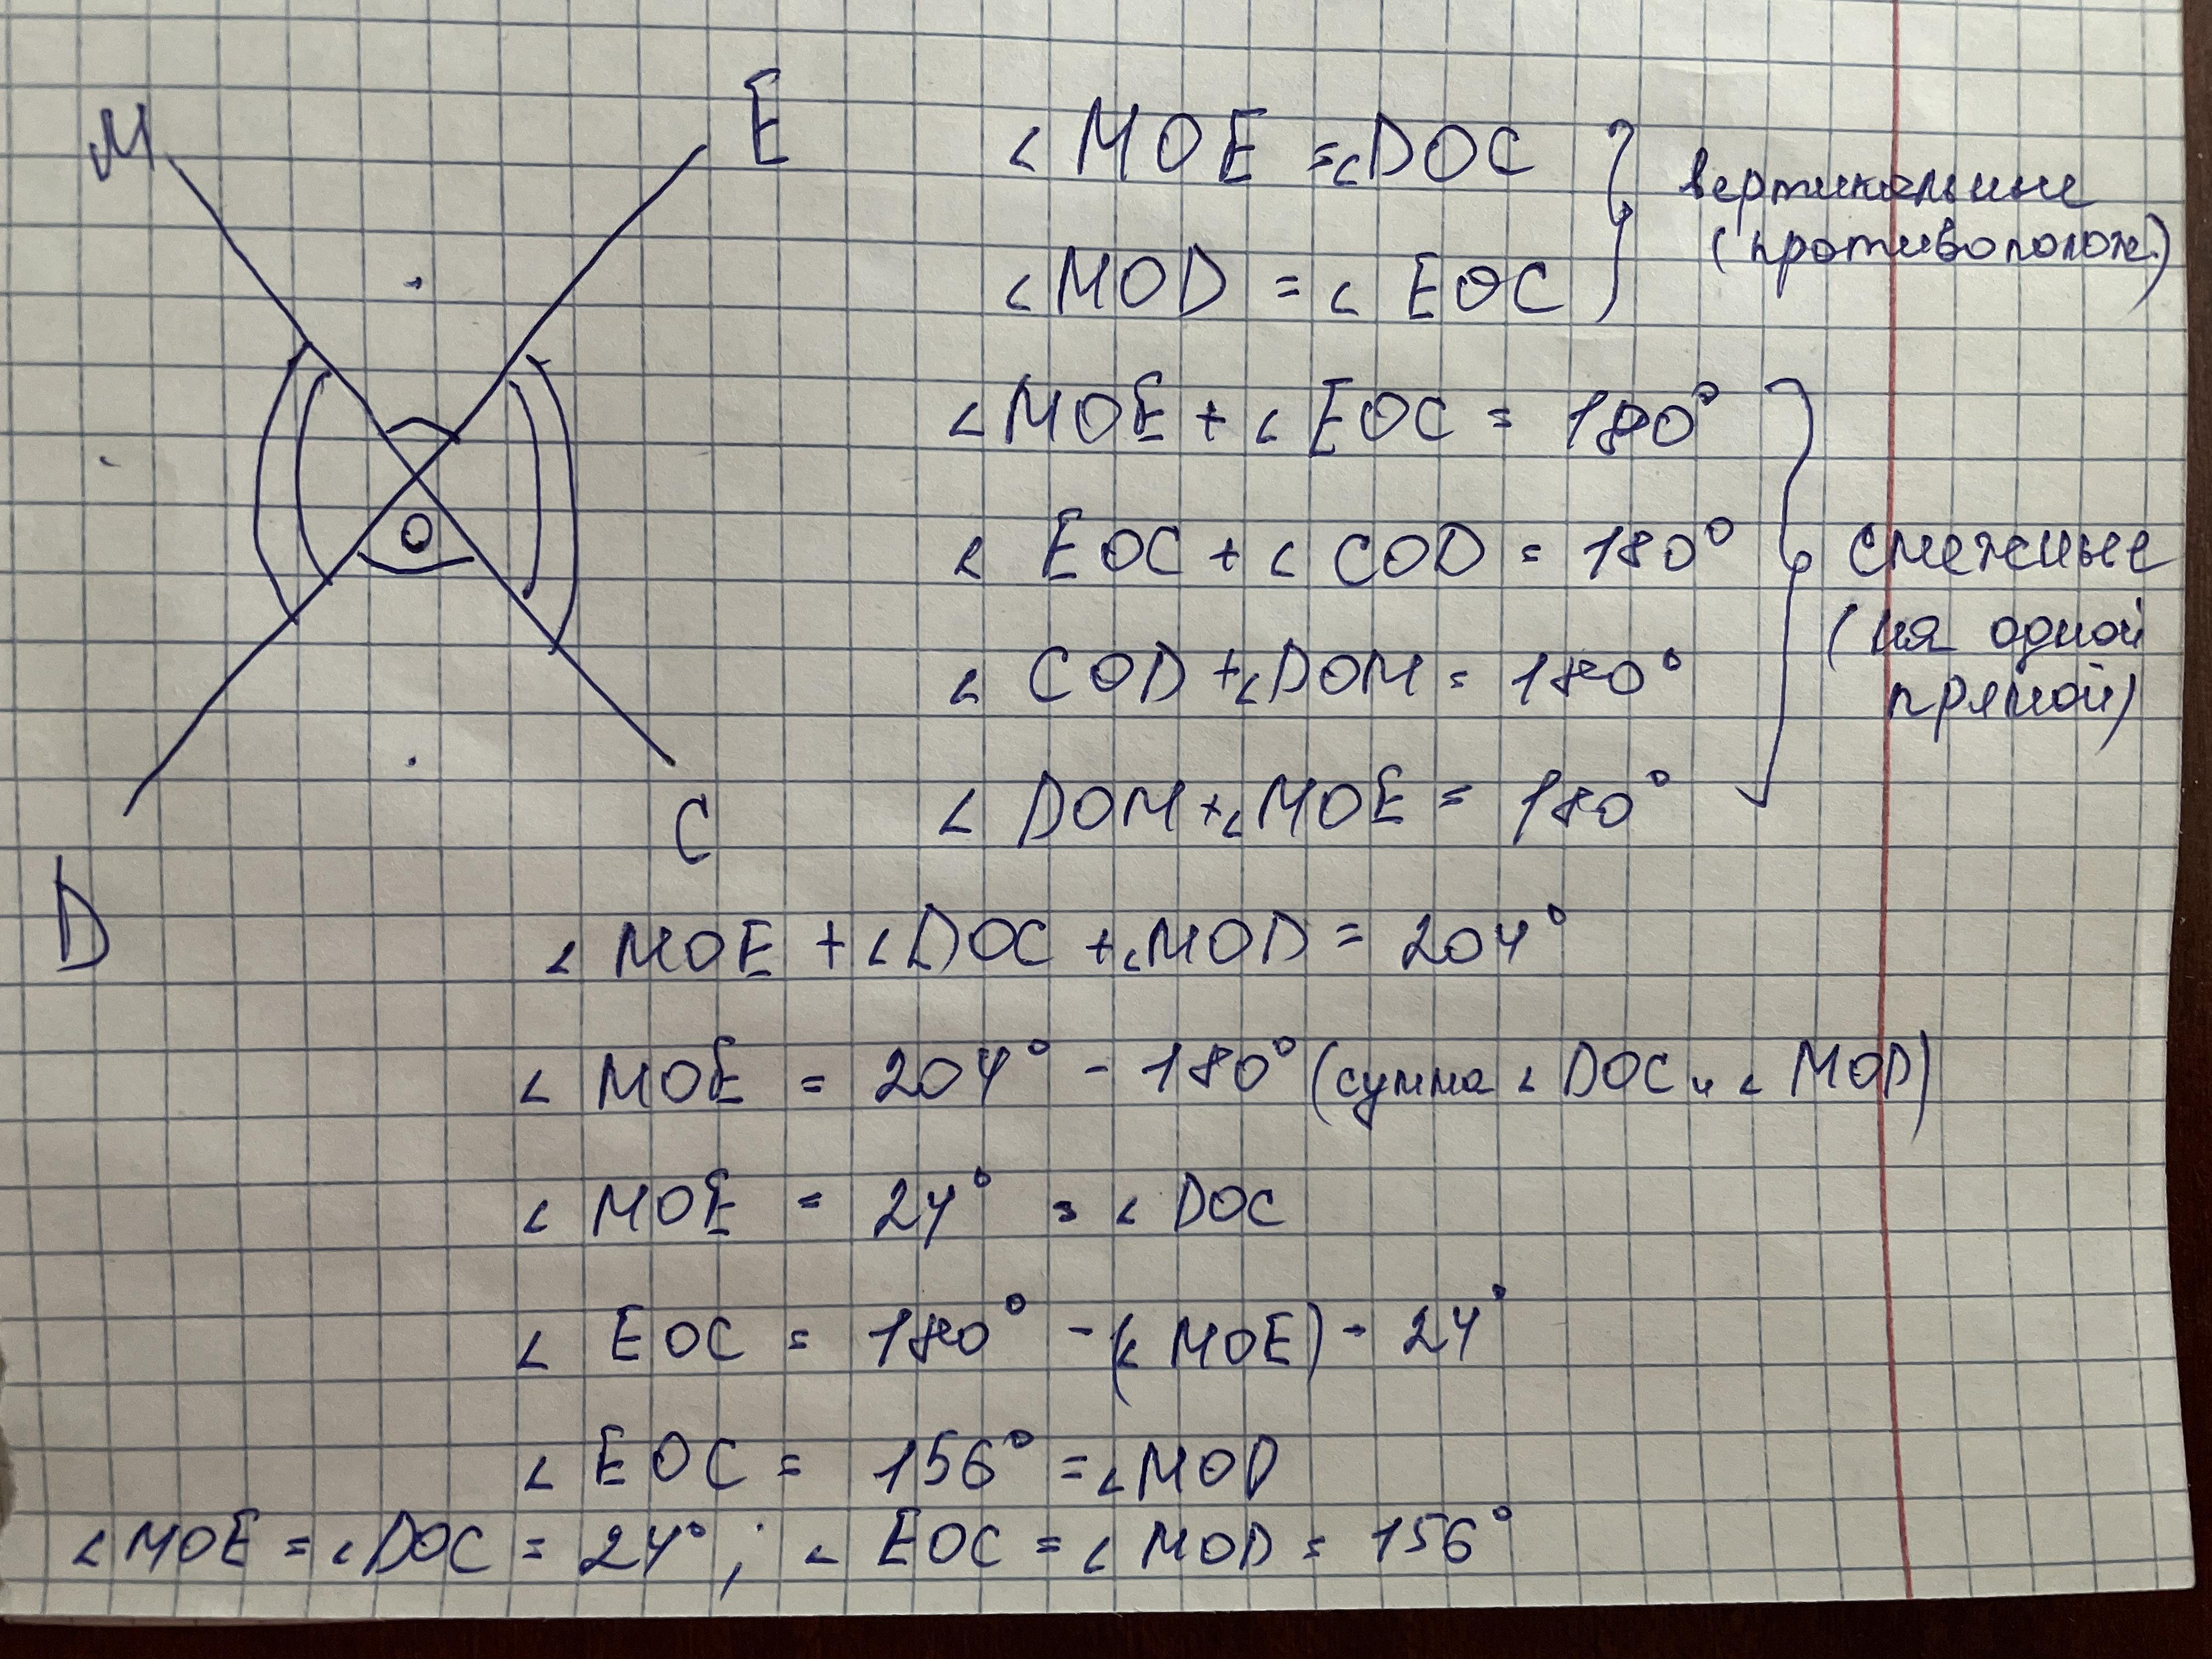 M
E
O
D
C
∠ MOE = ∠DOC
∠ MOD = ∠ EOC
вертикальные
(противополож.)
∠ MOE + ∠ EOC = 180°
∠ EOC + ∠ COD = 180°
∠ COD + ∠DOM = 180°
∠ DOM + ∠MOE = 180°
смежные
(на одной
прямой)
∠ MOE + ∠DOC + ∠MOD = 204°
∠ MOE = 204° - 180° (сумма ∠ DOC и ∠ MOD)
∠ MOE = 24° = ∠ DOC
∠ EOC = 180° - (∠ MOE) - 24°
∠ EOC = 156° = ∠MOD
∠MOE = ∠DOC = 24° ; ∠ EOC = ∠ MOD = 156°